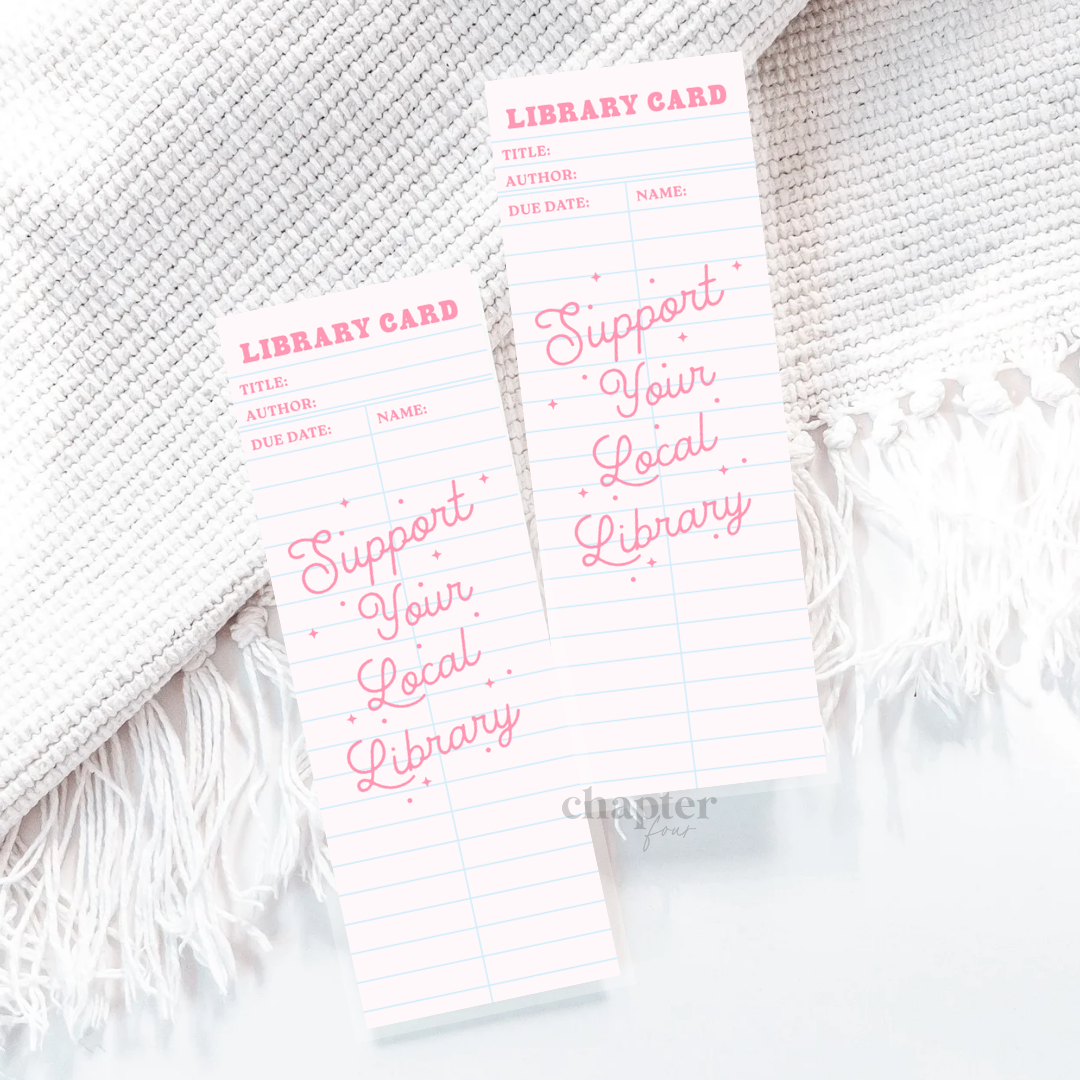 LIBRARY CARD
TITLE:
AUTHOR:
DUE DATE:
NAME:
Support
Your
Local
Library
LIBRARY CARD
TITLE:
AUTHOR:
DUE DATE:
NAME:
Support
Your
Local
Library
chapter
four